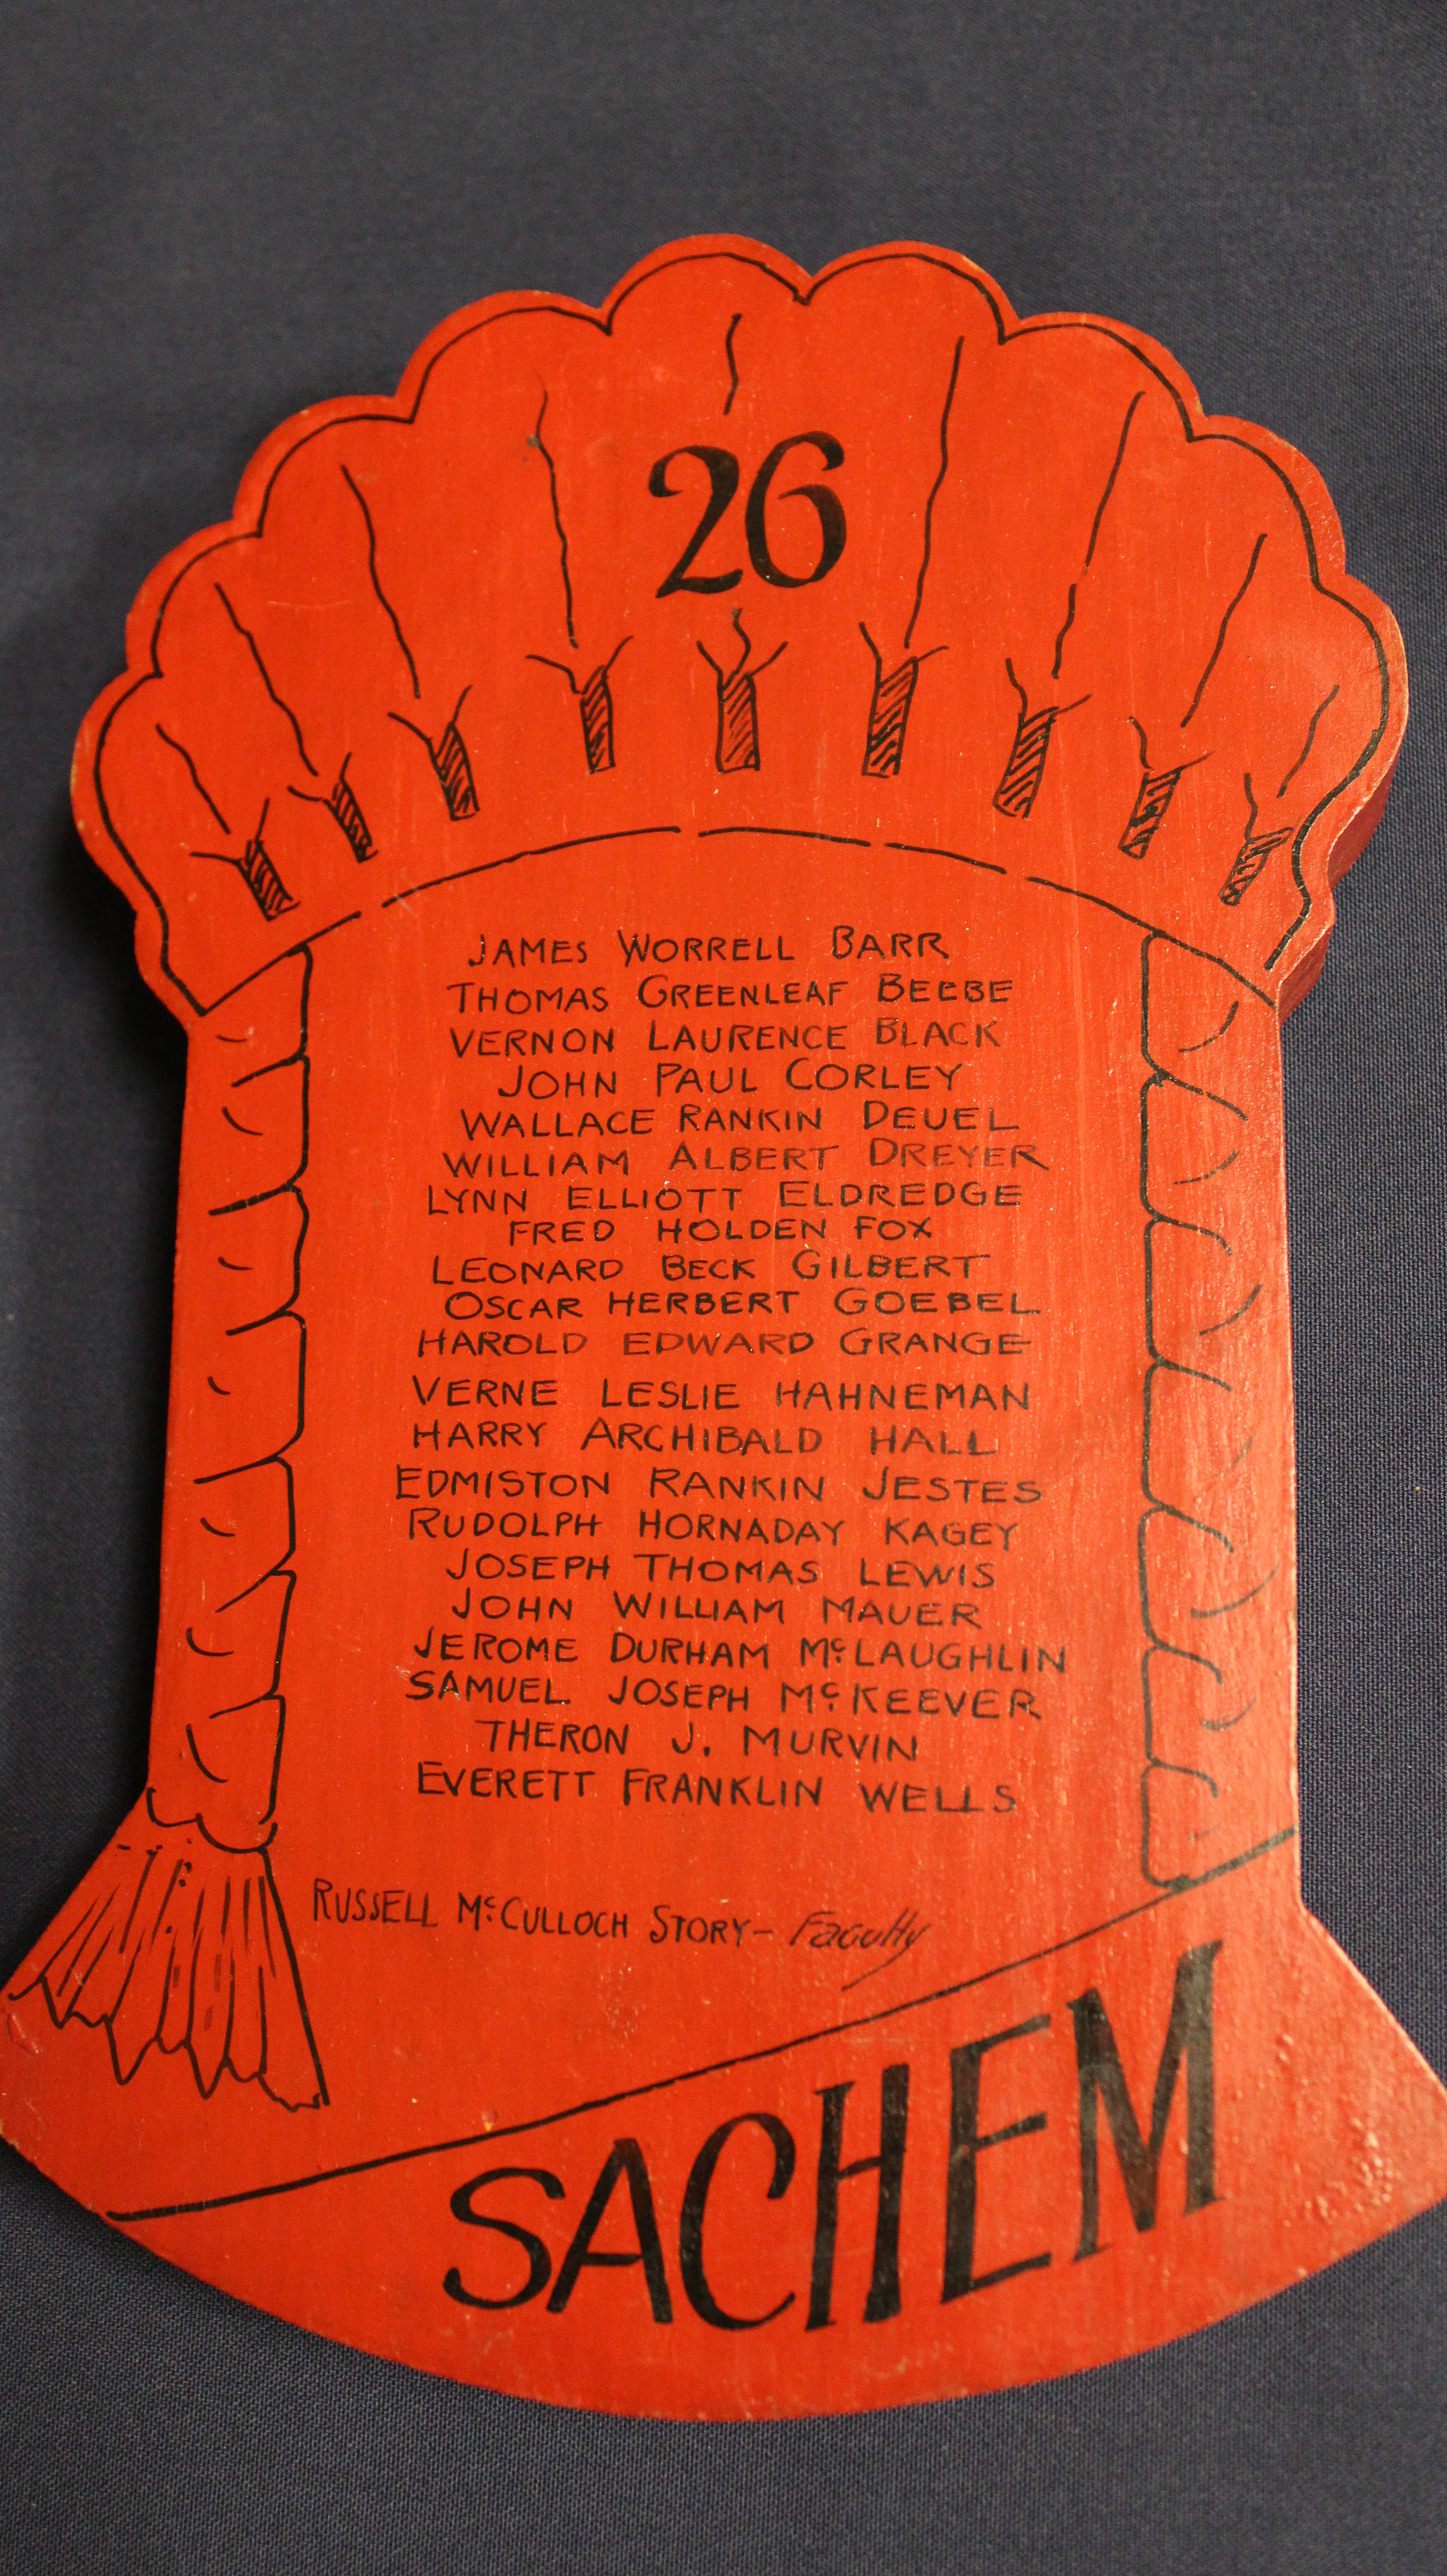 26
JAMES WORRELL BARR
THOMAS GREENLEAF BEEBE
VERNON LAURENCE BLACK
JOHN PAUL CORLEY
WALLACE RANKIN DEUEL
WILLIAM ALBERT DREYER
LYNN ELLIOTT ELDREDGE
FRED HOLDEN FOX
LEONARD BECK GILBERT
OSCAR HERBERT GOEBEL
HAROLD EDWARD GRANGE
VERNE LESLIE HAHNEMAN
HARRY ARCHIBALD HALL
EDMISTON RANKIN JESTES
RUDOLPH HORNADAY KAGEY
JOSEPH THOMAS LEWIS
JOHN WILLIAM MAUER
JEROME DURHAM McLAUGHLIN
SAMUEL JOSEPH McKEEVER
THERON J. MURVIN
EVERETT FRANKLIN WELLS
RUSSELL McCULLOCH STORY - Faculty
SACHEM